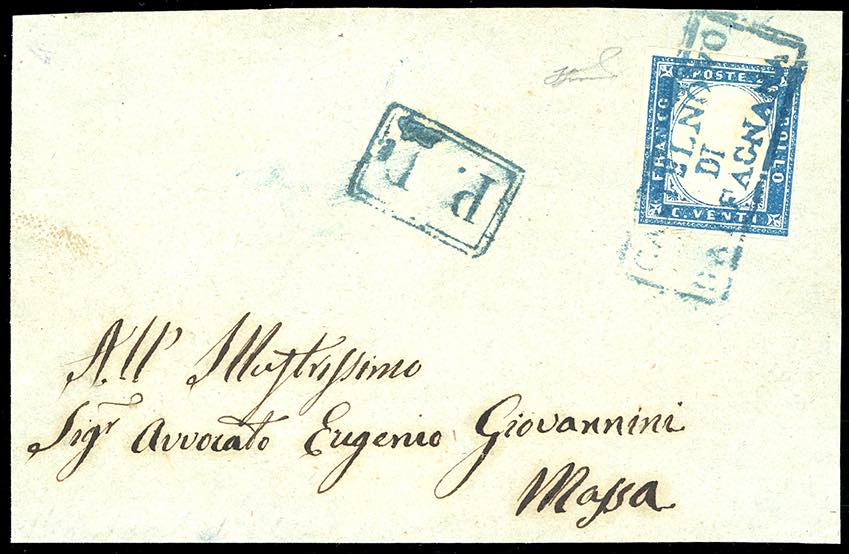 C. POSTE 20
FRANCO
BOLLO
C. VENTI
CASTELNUOVO
DI
GARFAGNANA
P. P.
All' Illustrissimo
Sigr Avvocato Eugenio Giovannini
Massa